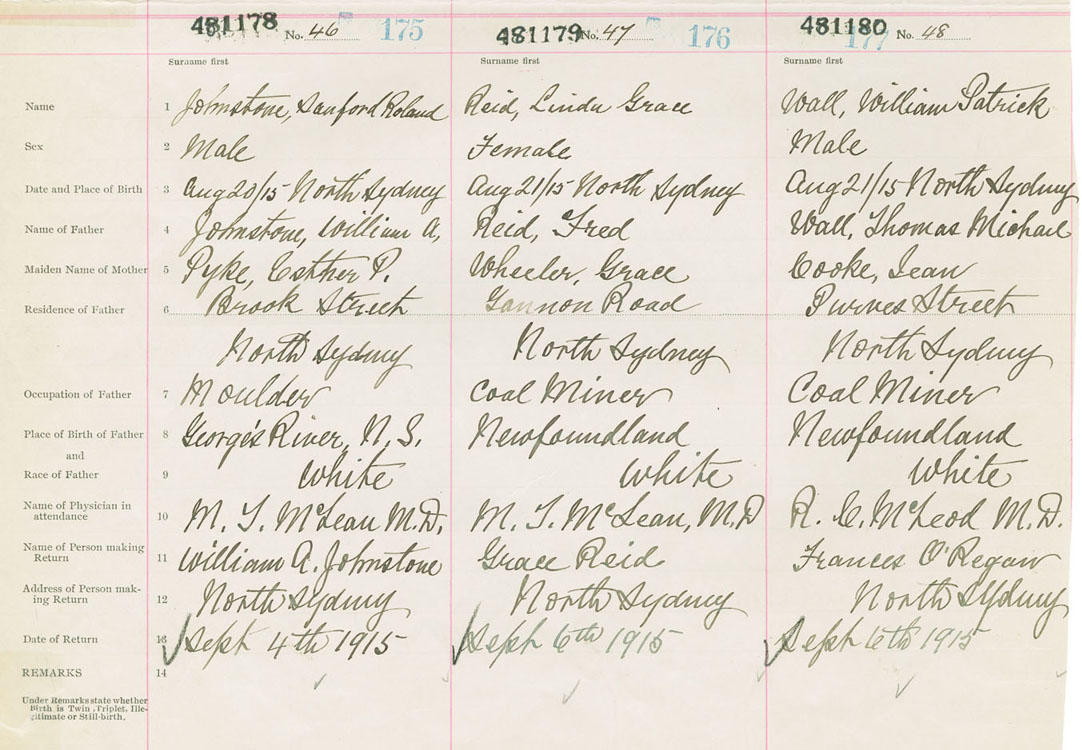 481178 No. 46 175 481179 No. 47 176 481180 No. 48 177
Surname first Surname first Surname first
Name 1 Johnstone, Sanford Roland Reid, Linda Grace Wall, William Patrick
Sex 2 Male Female Male
Date and Place of Birth 3 Aug 20/15 North Sydney Aug 21/15 North Sydney Aug 21/15 North Sydney
Name of Father 4 Johnstone, William A, Reid, Fred Wall, Thomas Michael
Maiden Name of Mother 5 Pyke, Esther P. Wheeler, Grace Cooke, Jean
Residence of Father 6 Brook Street Gannon Road Purves Street
North Sydney North Sydney North Sydney
Occupation of Father 7 Moulder Coal Miner Coal Miner
Place of Birth of Father 8 George's River, N.S. Newfoundland Newfoundland
and
Race of Father 9 White White White
Name of Physician in
attendance 10 M. T. McLean M.D. M. T. McLean, M.D R. C. McLeod M.D.
Name of Person making
Return 11 William A. Johnstone Grace Reid Frances O'Regan
Address of Person mak-
ing Return 12 North Sydney North Sydney North Sydney
Date of Return 13 Sept 4th 1915 Sept 6th 1915 Sept 6th 1915
REMARKS 14
Under Remarks state whether
Birth is Twin, Triplet, Ille-
gitimate or Still-birth.